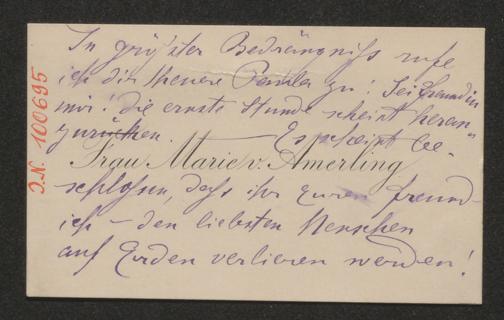 In größter Bedrängniß rufe
ich dir theuere Paula zu! Sei Freundin
mir! die ernste Stunde scheint heran"
zurücken. — Es scheint be-
Frau Marie v. Amerling
schlossen, daß ihr euren Freund —
ich — den liebsten Menschen
auf Erden verlieren werden!
J.N. 100695